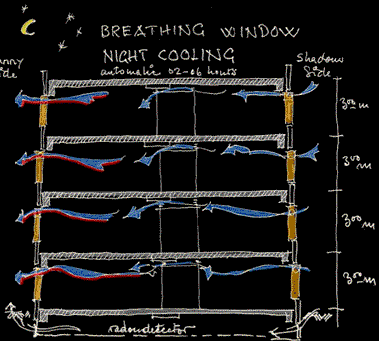 BREATHING WINDOW
NIGHT COOLING
automatic 02-06 hours
nny
Side
Shadow
Side
300 m
300 m
300 m
300 m
radondetector